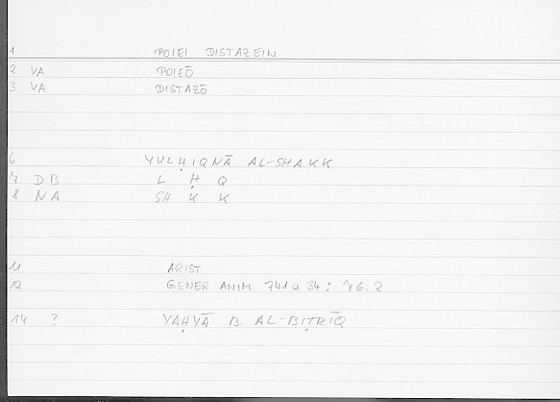 1 POIEI DISTAZEIN
2 VA POIEŌ
3 VA DISTAZŌ
6 YULḤIQNĀ AL-SHAKK
7 DB L Ḥ Q
8 NA SH K K
11 ARIST
12 GENER ANIM 741a 34 : 76.2
14 ? YAḤYĀ B. AL-BIṬRĪQ